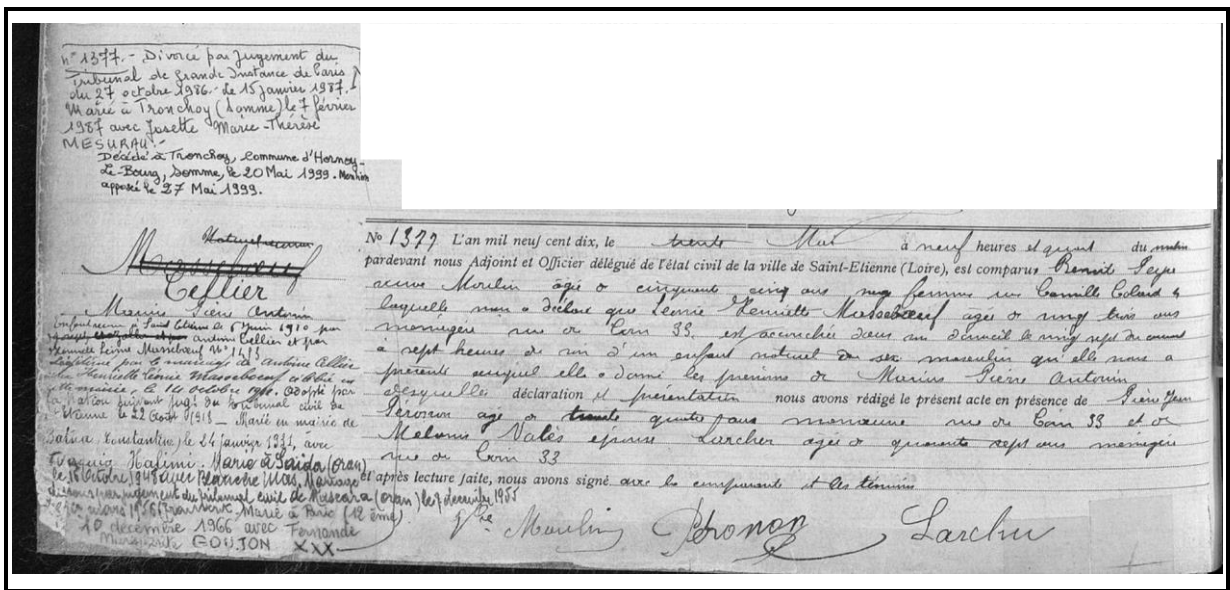 n° 1377. - Divorcé par Jugement du
Tribunal de Grande Instance de Paris
du 27 octobre 1986. - Le 15 janvier 1987.
Marié à Tronchoy (Somme) le 7 février
1987 avec Josette Marie-Thérèse
MESURAU. -
Décédé à Tronchoy, Commune d'Hornoy-
Le-Bourg, Somme, le 20 Mai 1999. Mention
apposée le 27 Mai 1999.
Massebœuf
Tellier
Marius Pierre Antonin
Saint Etienne le 6 Juin 1910 par
Antoine Tellier et par
Massebœuf N° 1413
par le mariage de Antoine Tellier
Henriette Léonie Massebœuf célébré en
cette mairie, le 14 octobre 1911. Adopté par
la Nation suivant jugt du tribunal civil de
St Etienne le 22 Août 1919 _ Marié en mairie de
Batna (Constantine) le 24 janvier 1931, avec
Halimi. Marié à Saïda (Oran)
le 16 Octobre 1948 avec Blanche Mas, Mariage
dissous par jugement du tribunal civil de Mascara (Oran) le 7 décembre 1955
Marié à Paris (12ème)
10 décembre 1966 avec Fernande
Marguerite GOUJON XXX
No 1377 L'an mil neuf cent dix, le trente Mai à neuf heures et quart du matin
pardevant nous Adjoint et Officier délégué de l'état civil de la ville de Saint-Etienne (Loire), est comparue Benoit
veuve Moulin agée de cinquante cinq ans sage femme rue Camille Colard
laquelle nous a déclaré que Léonie Henriette Massebœuf agée de vingt trois ans
ménagère rue de Lyon 33, est accouchée dans son domicile le vingt sept du courant
à sept heures du soir d'un enfant naturel du sexe masculin qu'elle nous a
présenté auquel elle a donné les prénoms de Marius Pierre Antonin
desquelles déclaration et présentation nous avons rédigé le présent acte en présence de Pierre Jean
Peronon agé de trente quatre ans rue de Lyon 33 et de
Melanie Valès épouse Larcher agée de quarante sept ans ménagère
rue de Lyon 33
et après lecture faite, nous avons signé avec la comparante et les témoins
Vve Moulin Peronon Larcher